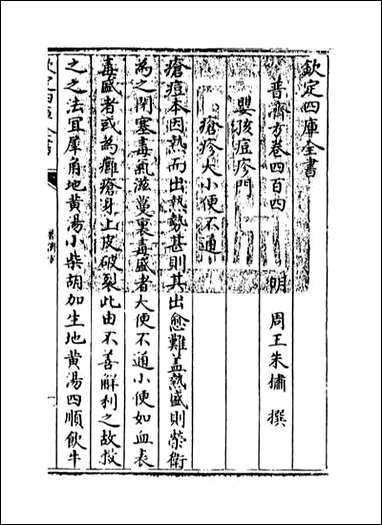 欽定四庫全書
普濟方卷四百四
明 周王朱橚 撰
嬰孩痘疹門
瘡疹大小便不通
瘡痘本因熱而出熱勢甚則其出愈難盖熱盛則榮衛
為之閉塞毒氣滋蔓裏毒盛者大便不通小便如血表
毒盛者或為癰瘡身上皮破裂此由不善解利之故救
之之法宜犀角地黄湯小柴胡加生地黄湯四順飲牛
欽定四庫全書
普濟方